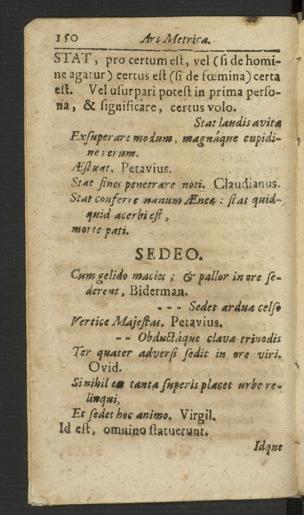 150 Ars Metrica.
STAT, pro certum est, vel (si de homi-
ne agatur) certus est (si de fœmina) certa
est. Vel usurpari potest in prima perso-
na, & significare, certus volo.
Stat laudis avita
Exsuperare modum, magnáque cupidi-
ne rerum.
Æstuat. Petavius.
Stat fines penetrare noti. Claudianus.
Stat conferre manum Æneæ: stat quid-
quid acerbi est,
morte pati.
SEDEO.
Cum gelido macies; & pallor in ore se-
derent, Biderman.
--- Sedet ardua celso
Vertice Majestas. Petavius.
-- Obductáque clava trinodis
Ter quater adversi sedit in ore viri.
Ovid.
Si nihil ex tanta superis placet urbe re-
linqui,
Et sedet hoc animo. Virgil.
Id est, omnino statuerunt.
Idque